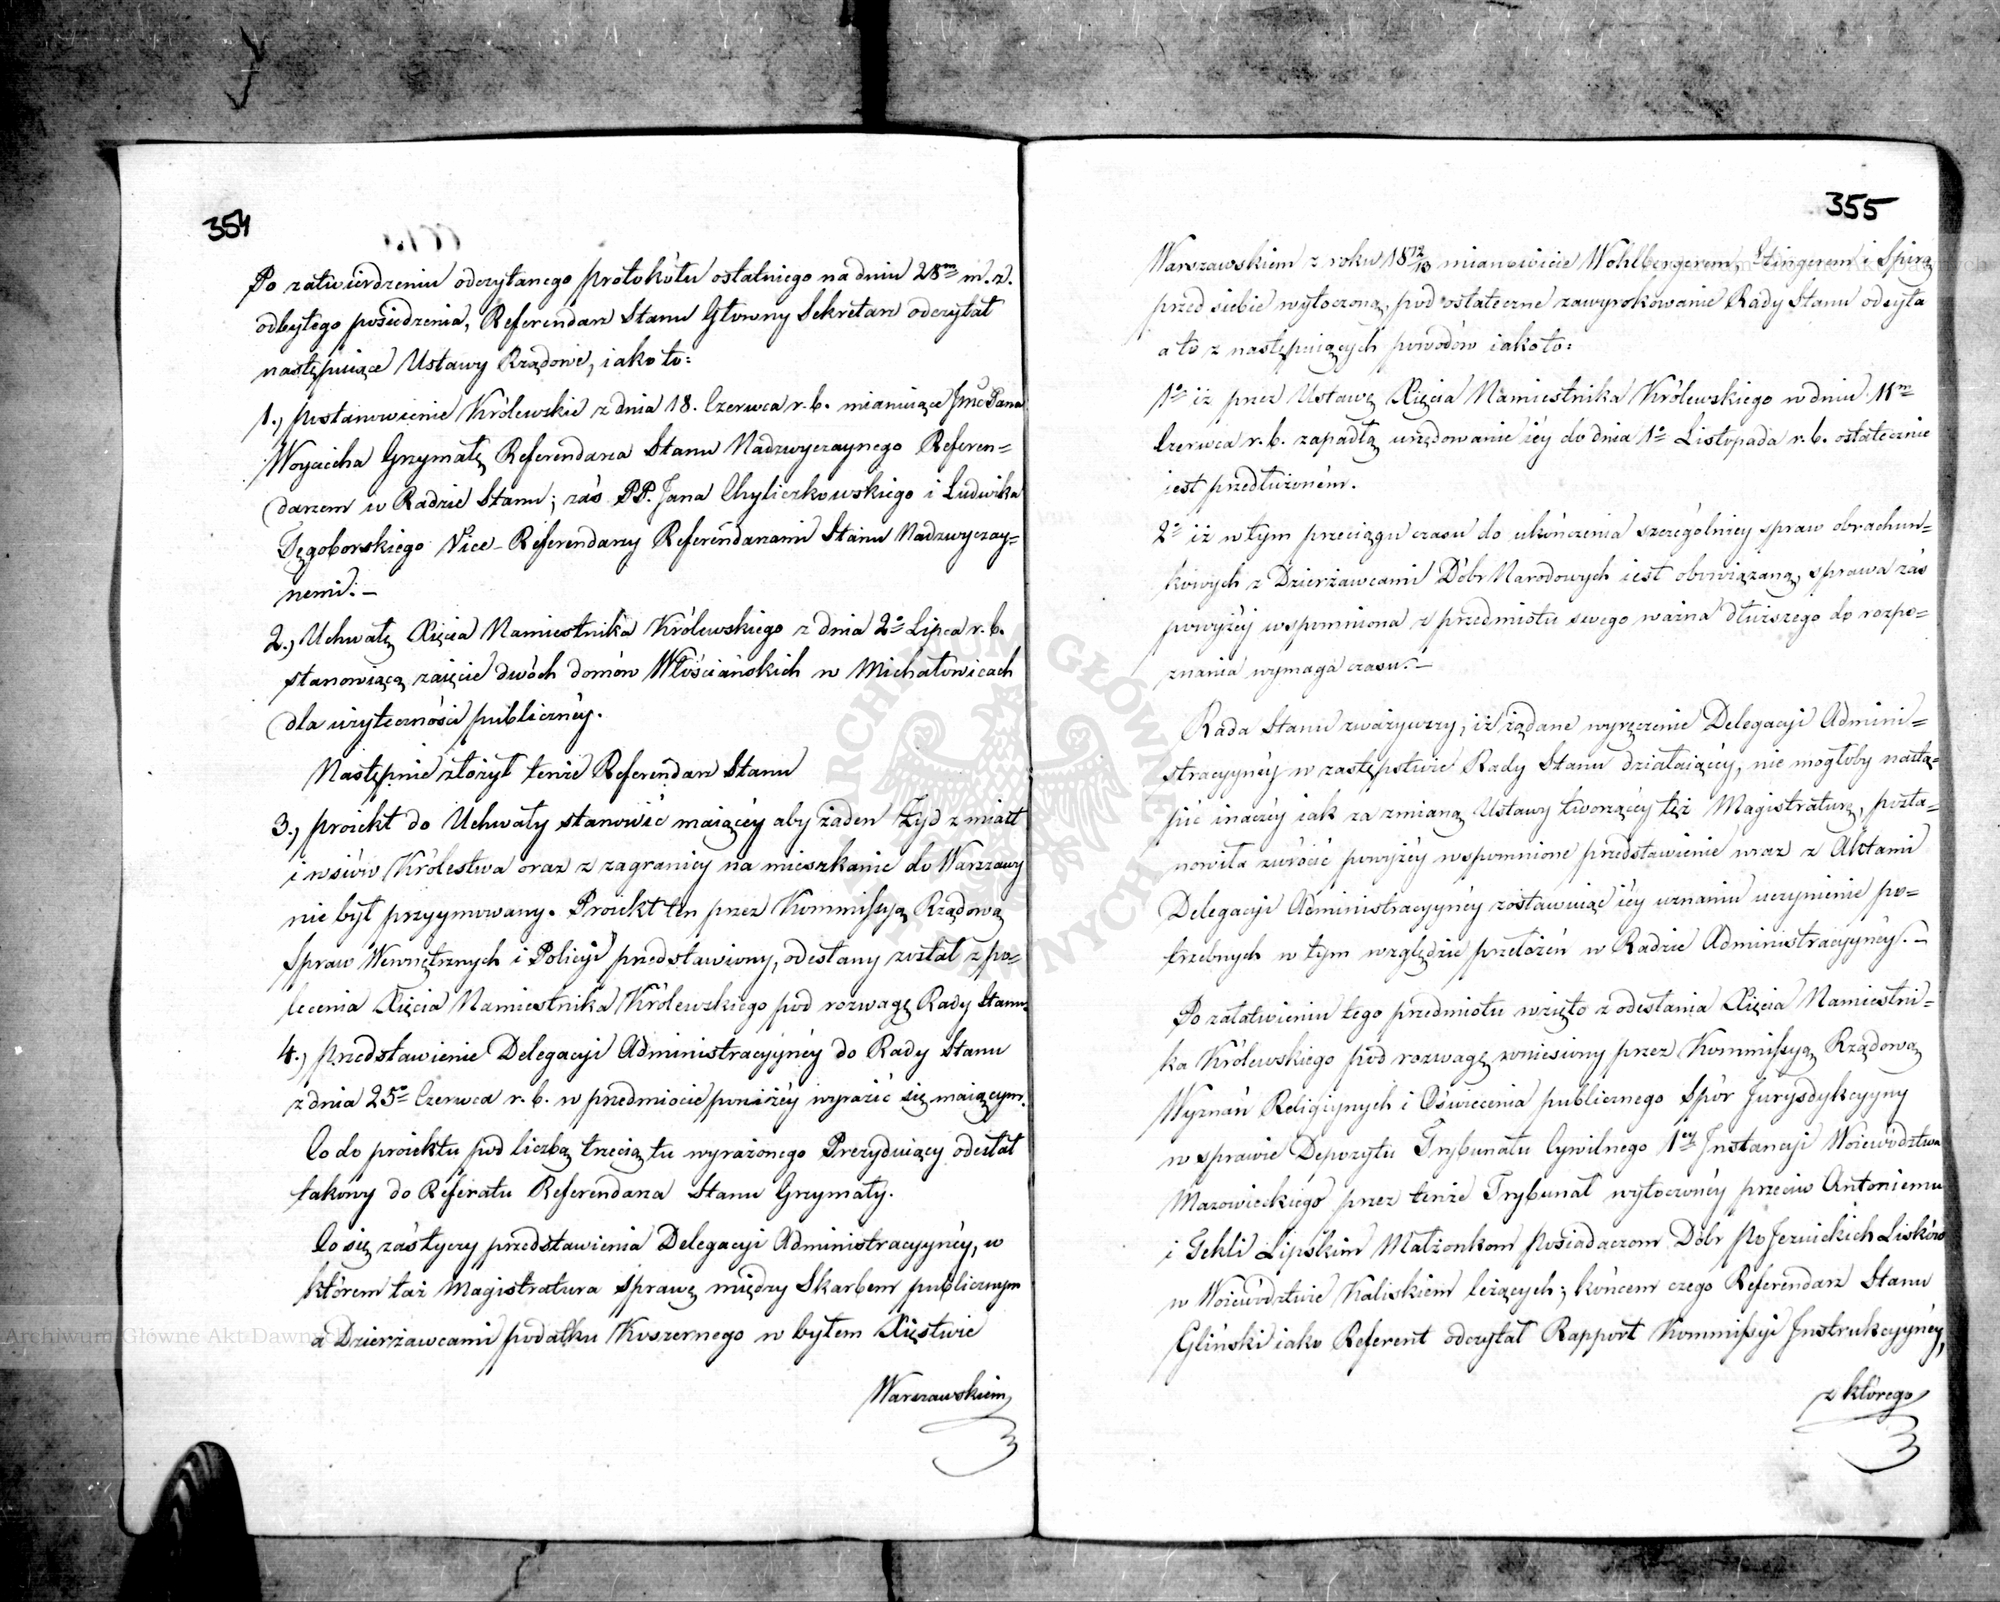 354
Po zatwierdzeniu odczytanego protokółu ostatniego na dniu 28m m. z.
odbytego posiedzenia, Referendarz Stanu Głowny Sekretarz odczytał
następuiące Ustawy Rządowe, iako to:
1.) postanowienie Królewskie z dnia 18. Czerwca r. b. mianuiące JmcPana
Woyciecha Grzymałę Referendarza Stanu Nadzwyczaynego Referen=
darzem w Radzie Stanu; zaś PP. Jana Chyliczkowskiego i Ludwika
Tęgoborskiego Vice-Referendarzy Referendarzami Stanu Nadzwyczay=
nemi. –
2.) Uchwałę Xięcia Namiestnika Królewskiego z dnia 2o Lipca r. b.
stanowiącą zaięcie dwóch domów Włościańskich w Michałowicach
dla użyteczności publicznéy.
Następnie złożył tenże Referendarz Stanu
3.) proiekt do Uchwały stanowić maiącéy aby żaden Żyd z miast
i wsiów Królestwa oraz z zagranicy na mieszkanie do Warszawy
nie był przyymowany. Proiekt ten przez Kommissyą Rządową
Spraw Wewnętrznych i Policyi przedstawiony, odesłany został z po=
lecenia Xięcia Namiestnika Królewskiego pod rozwagę Rady Stanu.
4.) przedstawienie Delegacyi Administracyynéy do Rady Stanu
z dnia 25o Czerwca r. b. w przedmiocie poniżéy wyrazić się maiącym.
Co do proiektu pod liczbą trzecią tu wyrażonego Prezyduiący odesłał
takowy do Referatu Referendarza Stanu Grzymały.
Co się zaś tyczy przedstawienia Delegacyi Administracyynéy, w
którem taż Magistratura sprawę między Skarbem publicznym
a Dzierżawcami podatku Koszernego w byłem Xięstwie
Warszawskiem
355
Warszawskiem z roku 1812/13 mianowicie Wohlbergerem, i Spirą
przed siebie wytoczoną, pod ostateczne zawyrokowanie Rady Stanu odsyła
a to z następuiących powodów iako to:
1o iż przez Ustawę Xięcia Namiestnika Królewskiego w dniu 11m
Czerwca r. b. zapadłą urzędowanie iéy do dnia 1o Listopada r. b. ostatecznie
iest przedłużoném.
2o iż w tym przeciągu czasu do ukończenia szczególniéy spraw obrachun=
kowych z Dzierżawcami Dóbr Narodowych iest obowiązaną, sprawa zaś
powyżéy wspomniona z przedmiotu swego ważna dłuższego do rozpo=
znania wymaga czasu. –
Rada Stanu zważywszy, iż żądane wyrzeczenie Delegacyi Admini=
stracyynéy w zastępstwie Rady Stanu działaiącéy, nie mogłoby nastą=
pić inaczéy iak za zmianą Ustawy tworzącéy też Magistraturę, posta=
nowiła zwrócić powyżéy wspomnione przedstawienie wraz z Aktami
Delegacyi Administracyynéy zostawuiąc iéy uznaniu uczynienie po=
trzebnych w tym względzie przełożeń w Radzie Administracyynéy. –
Po załatwieniu tego przedmiotu wzięto z odesłania Xięcia Namiestni=
ka Królewskiego pod rozwagę wniesiony przez Kommissyą Rządową
Wyznań Religiynych i Oświecenia publicznego Spór Jurysdykcyyny
w sprawie Depozytu Trybunału Cywilnego 1ey Instancyi Woiewództwa
Mazowieckiego przez tenże Trybunał wytoczonéy przeciw Antoniemu
i Tekli Lipskim Małżonkom posiadaczom Dóbr poJezuickich Lisków
w Woiewództwie Kaliskiem leżących; końcem czego Referendarz Stanu
Gliński iako Referent odczytał Rapport Kommissyi Instrukcyynéy,
z którego
Archiwum Główne Akt Dawnych